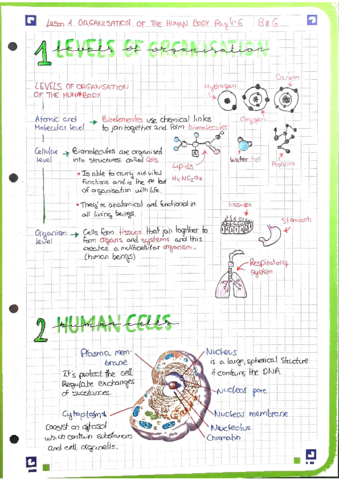 Lesson 1 ORGANISATION OF THE HUMAN BODY Pag 4-6 B&G
1 LEVELS OF ORGANISATION
levels of organisation
LEVELS OF ORGANISATION
OF THE HUMAN BODY
Hydrogen
Carbon
Oxygen
Atomic and
Molecular level
Bioelements use chemical links
to join together and form biomolecules
Cellular
level
Biomolecules are organised
into structures called Cells.
Lipids
Water
Protein
• Is able to carry out vital
functions and is the 1st level
of organisation with life.
• They're anatomical and functional in
all living beings.
Organism
level
Cells form tissues that join together to
form organs and systems and this
creates a multicellular organism.
(human beings)
tissues
Stomach
Respiratory
System
2 HUMAN CELLS
human cells
Plasma mem
brane
It's protect the cell
Regulate exchanges
of substances.
Cytoplasm
Consist on cytosol
which contain substances
and cell organelles.
Nucleus
is a large, spherical structure
it contains the DNA
Nuclear pore
Nucleus membrane
Nucleolus
Chromatin